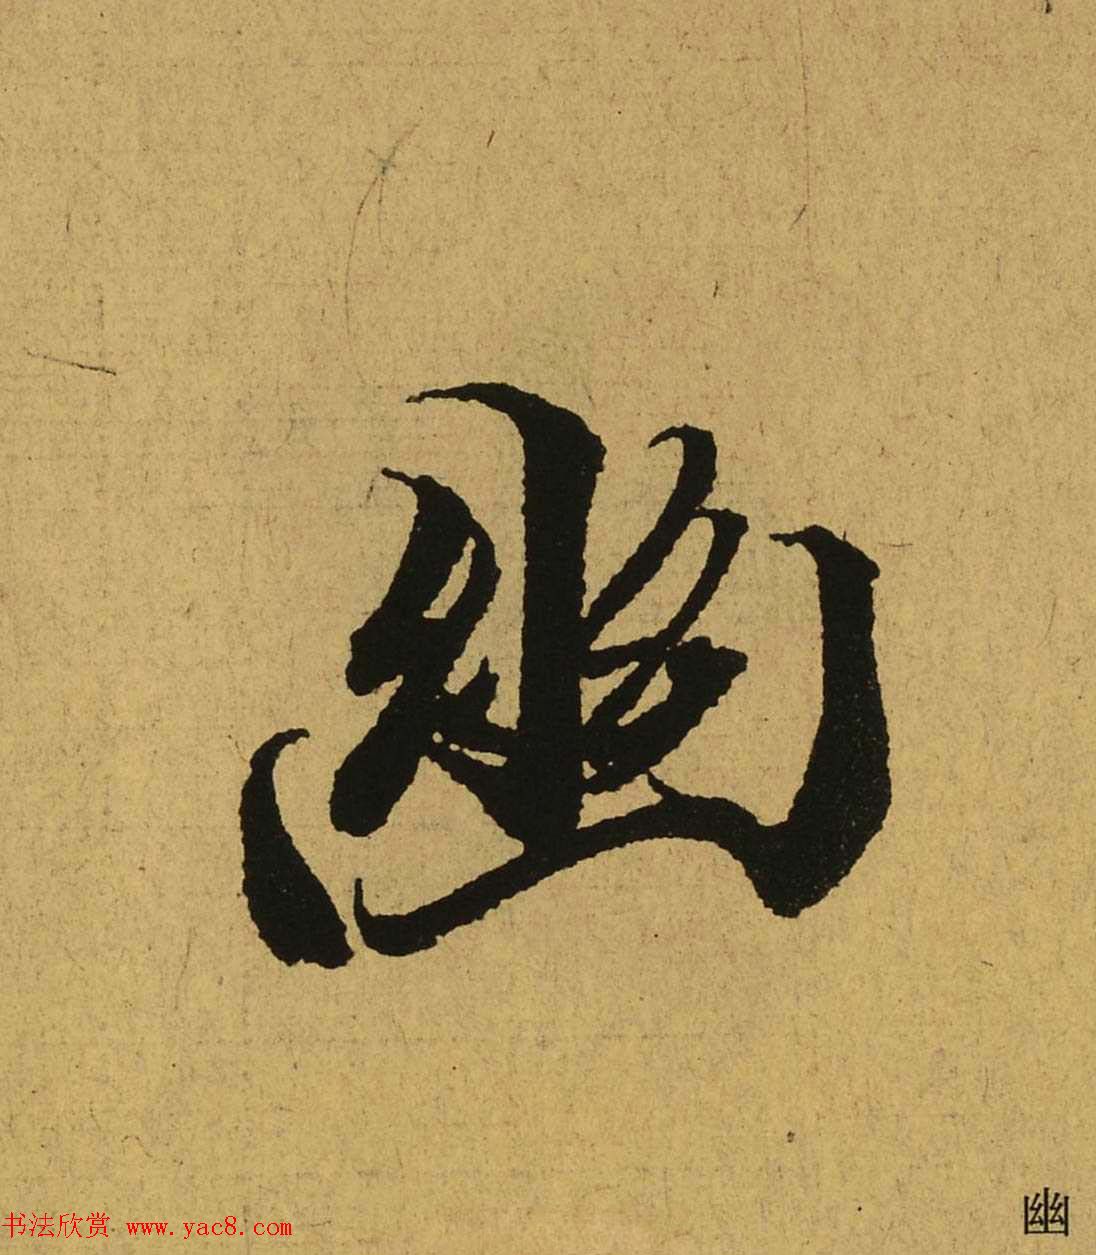 幽
书法欣赏 www.yac8.com
幽